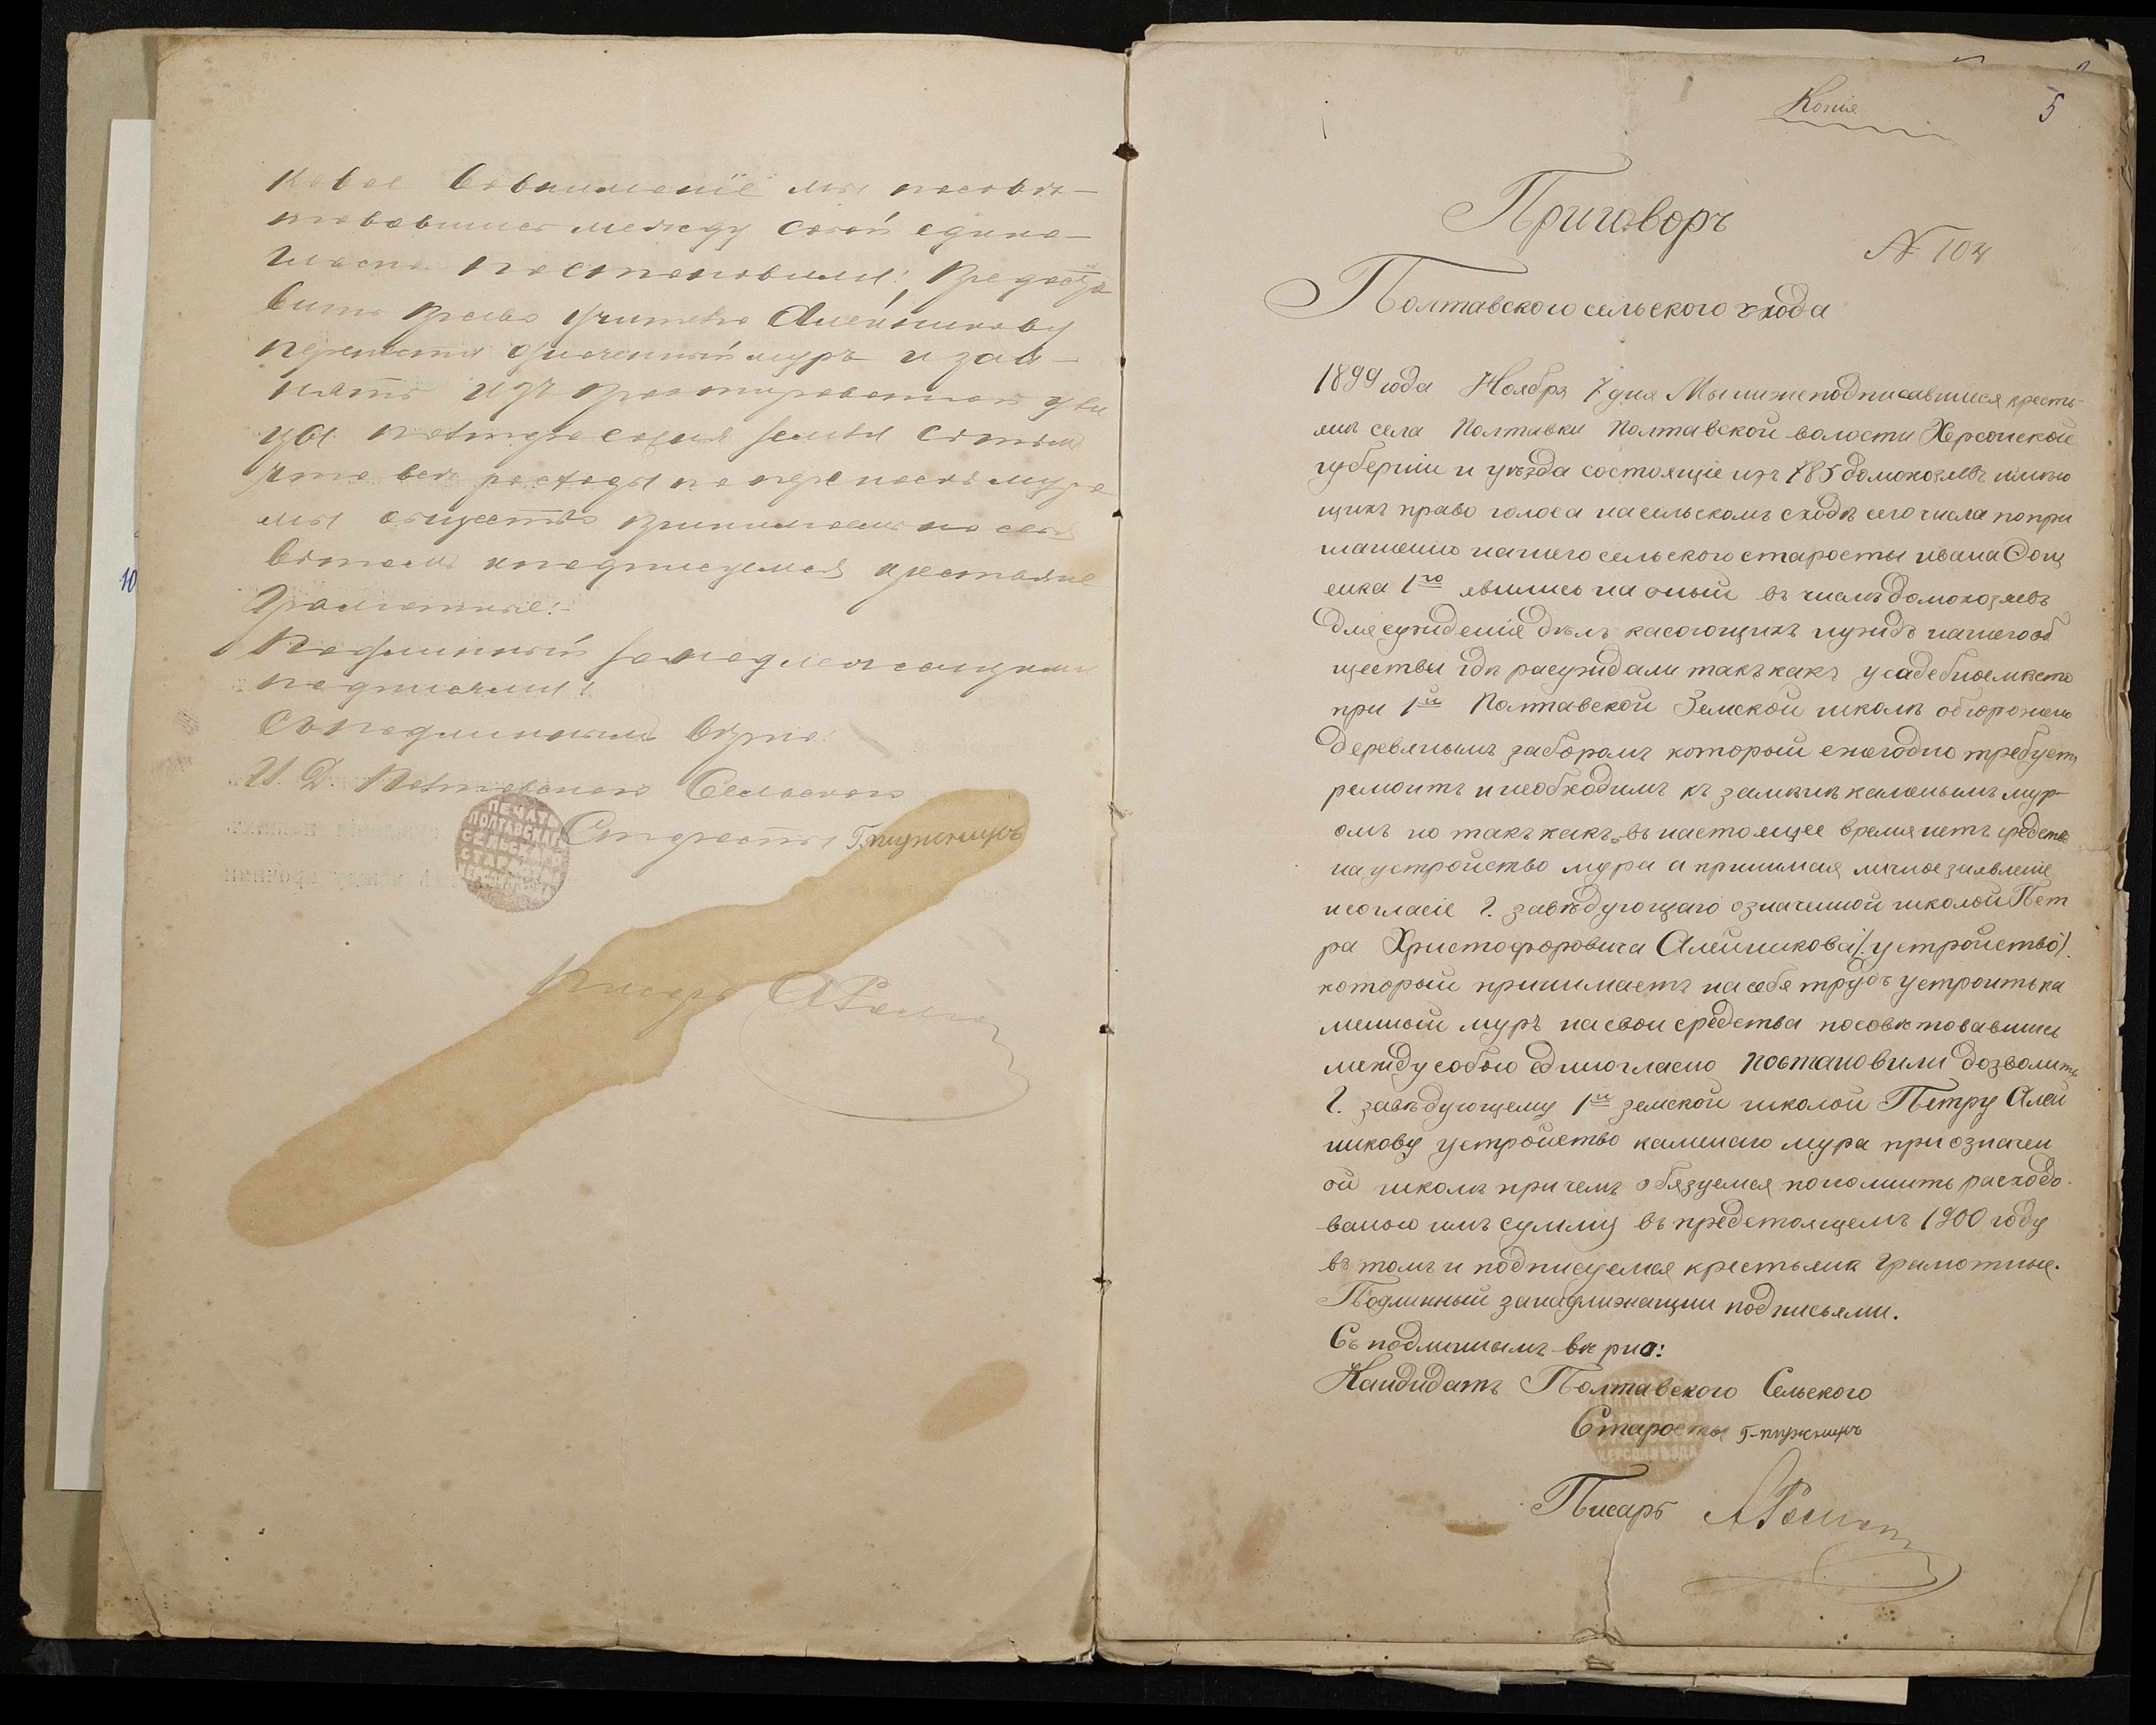 ковое вовниманіе мы посовѣ-
товавшись между собой едино-
гласно постановили: Предоста
вить право учителю Алейникову
перенести означенный муръ и зав-
нять изъ проэктированной ули
цы саженя земли стѣмъ
что всѣ расходы по переноскѣ мура
мы общество принимаемъ на себя
вчемъ и подписуемся крестьяне
Грамотные:
Подлинный за надлежащими
подписями:
Съ подлиннымъ вѣрно:
И. Д. Полтавскаго Сельскаго
ПЕЧАТЬ
ПОЛТАВСКАГО
СЕЛЬСКАГО
Старосты Г. пружницъ
Писарь
10
Копія
5
Приговоръ
№ 104
Полтавского сельского схода
1899 года Ноября 7 дня Мы нижеподписавшиеся кресть-
янъ села Полтавки Полтавской волости Херсонской
губерніи и уѣзда состоящіе изъ 785 домохозяевъ имѣю
щихъ право голоса на сельскомъ сходѣ сего числа по при
глашенію нашего сельского старосты Ивана
енка 1го явились на оный въ числѣ домохозяевъ
для сужденія дѣлъ касающихъ нуждъ нашего об
щества гдѣ расуждали такъ какъ усадебное мѣсто
при 1й Полтавской Земской школѣ обгорожено
деревянымъ заборомъ который ежегодно требуетъ
ремонтъ и необходимъ къ замѣнѣ каменымъ мур-
омъ но такъ какъ въ настоящее время нетъ средств
на устройство мура а принимая личное заявленіе
и согласіе Г. завѣдующаго означенной школой Пет
ра Христофоровича Алейникова /: устройство /:
который принимаетъ на себя трудъ устроить ка
менный муръ на свои средства посовѣтовавшись
между собою единогласно постановили дозволить
Г. завѣдующему 1й земской школой Петру Алей
никову устройство каменаго мура при означен
ой школѣ при чемъ обязуемся пополнить расходо
ваную имъ сумму въ предстоящемъ 1900 году
въ томъ и подписуемся крестьяна Грамотные.
Подлинный за надлижащии подписьями.
Съ подлиннымъ вѣрно:
Кандидатъ Полтавского Сельского
Старосты Г-пружницъ
Писарь